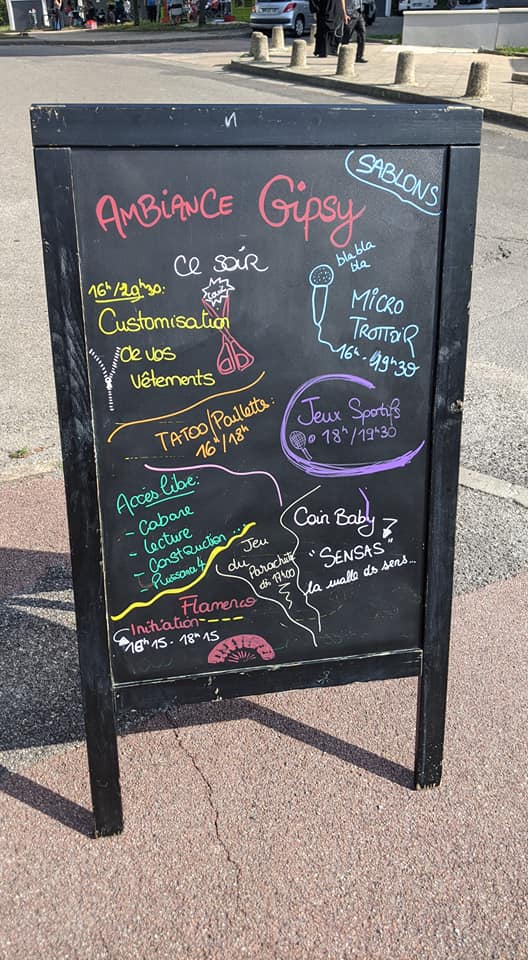 SABLONS
AMBIANCE Gipsy
CE SOIR
16h/19h30:
Customisation
de vos
Vêtements
bla bla
bla
MICRO
TROTTOIR
16h-19h30
TATOO/Paillette:
16h/18h
Jeux Sportifs
18h/19h30
Accès libre:
- Cabane
- Lecture
- Construction...
- Puissance 4
Jeu
du
Parachute
dès 17h00
Coin Baby
"SENSAS"
la malle des sens...
Flamenco
Initiation
16h15-18h15